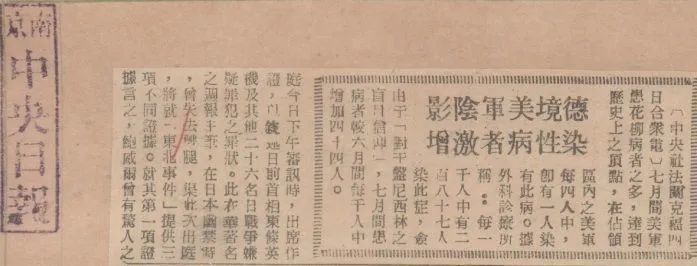 南京
中央日報
德境美軍陰影
染性病者激增
〔中央社法蘭克福四
日合衆電〕七月間美軍
患花柳病者之多，達到
歷史上之頂點，在佔領
區內之美軍
每四人中，
卽有一人染
有此病。據
外科診療所
稱：每一
千人中有二
百八十七人
染此症，僉
由于「對于盤尼西林之
盲目信仰」，七月間患
病者較六月間每千人中
增加四十四人。
庭今日下午審訊時，出席作
證，以述日前首相東條英
機及其他二十六名日戰爭嫌
疑罪犯之罪狀。此在華著名
之週報主筆，在日本幽禁時
，曾失去腿，渠此次出庭
，將就「東北事件」提供三
項不同證據。就其第一項證
據言之，鮑威爾曾有驚人之